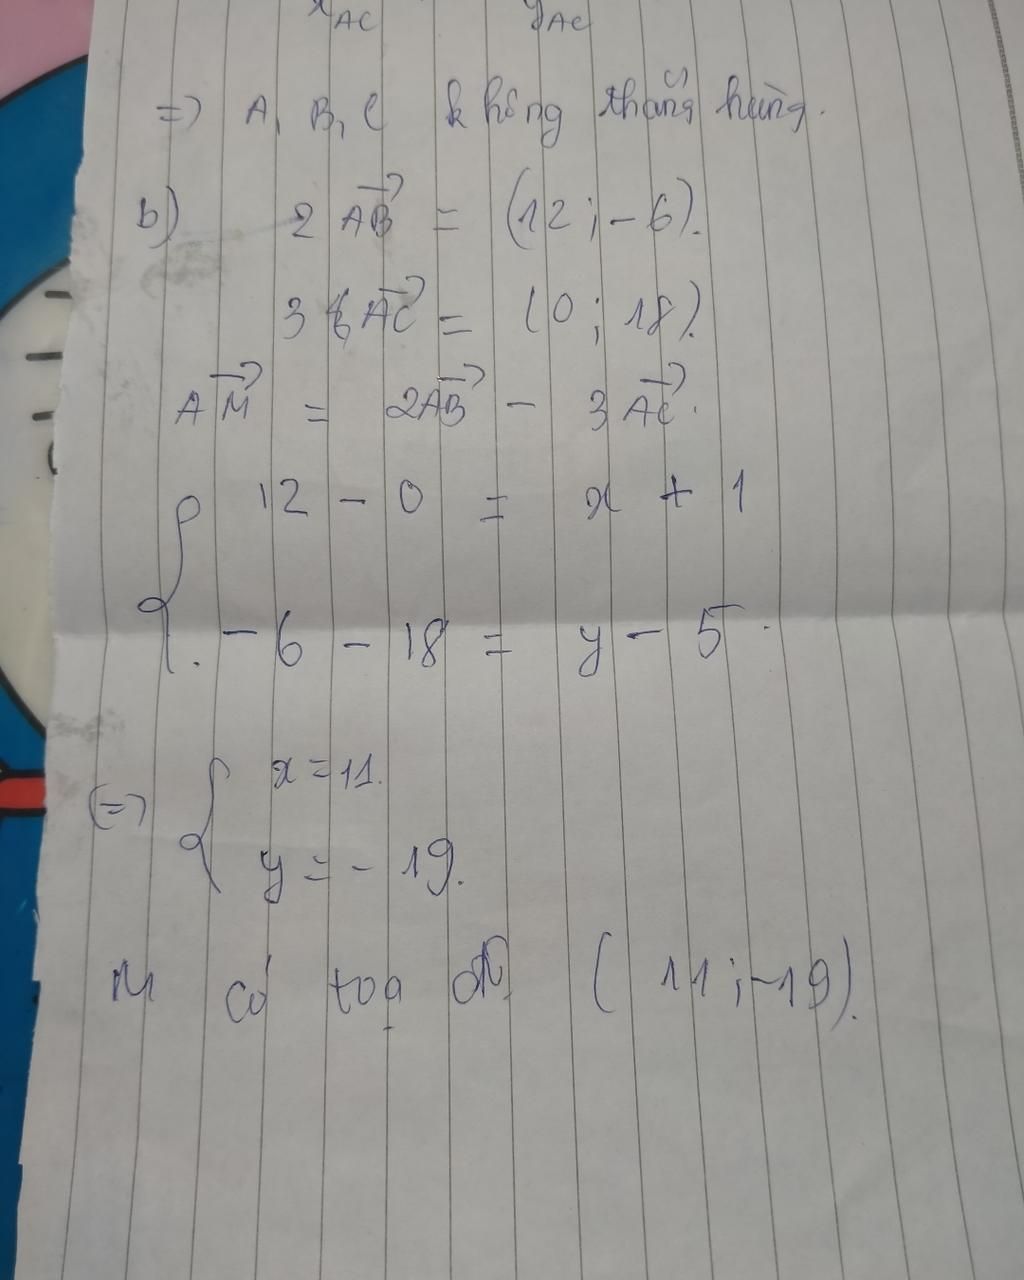 x_AC y_AC
=> A, B, C không thẳng hàng.
b) 2 \overrightarrow{AB} = (12 ; -6).
3 \overrightarrow{AC} = (0 ; 18).
\overrightarrow{AM} = 2\overrightarrow{AB} - 3\overrightarrow{AC}.
{ 12 - 0 = x + 1
{ -6 - 18 = y - 5.
<=> { x = 11.
{ y = -19.
M có toạ độ ( 11 ; -19).